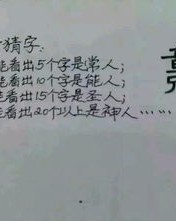 猜字:
能看出5个字是常人;
能看出10个字是能人;
能看出15个字是圣人;
能看出20个以上是神人……